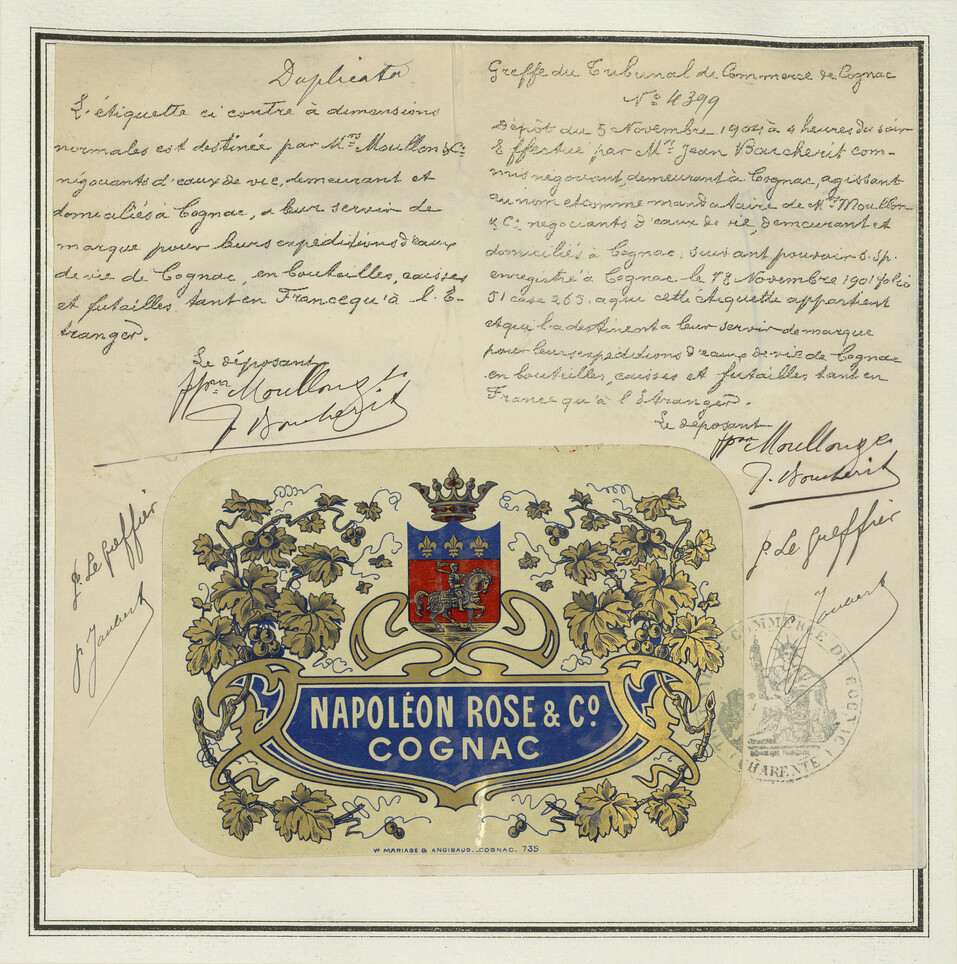 Duplicata
L'étiquette ci contre à dimensions
normales est destinée par M.rs Moullon & C.
négociants d'eaux de vie, demeurant et
domiciliés à Cognac, a leur servir de
marque pour leurs expéditions d'eaux
de vie de Cognac, en bouteilles, caisses
et futailles tant en France qu'à l'E-
tranger.
Le déposant
Moullon & C
J. Boucherit
p. Le Greffier
p. Jaubert
Greffe du Tribunal de Commerce de Cognac
N° 4399
Dépôt du 5 Novembre à 4 heures du soir
Effectué par M.r Jean Boucherit com-
mis négociant, demeurant à Cognac, agissant
au nom et comme mandataire de M.rs Moullon
& C. négociants d'eaux de vie, demeurant et
domiciliés à Cognac, suivant pouvoir s.sp.
enregistré à Cognac le Novembre 1901 folio
51 case 265, a qui cette étiquette appartient
et qui l'a destinent a leur servir de marque
pour leurs expéditions d'eaux de vie de Cognac
en bouteilles, caisses et futailles tant en
France qu'à l'Etranger.
Le déposant
Moullon & C
J. Boucherit
p. Le Greffier
Jaubert
NAPOLÉON ROSE & Cº
COGNAC
Vᵉ MARIAGE & ANGIBAUD._COGNAC. 735
COMMERCE DE COGNAC
(CHARENTE)